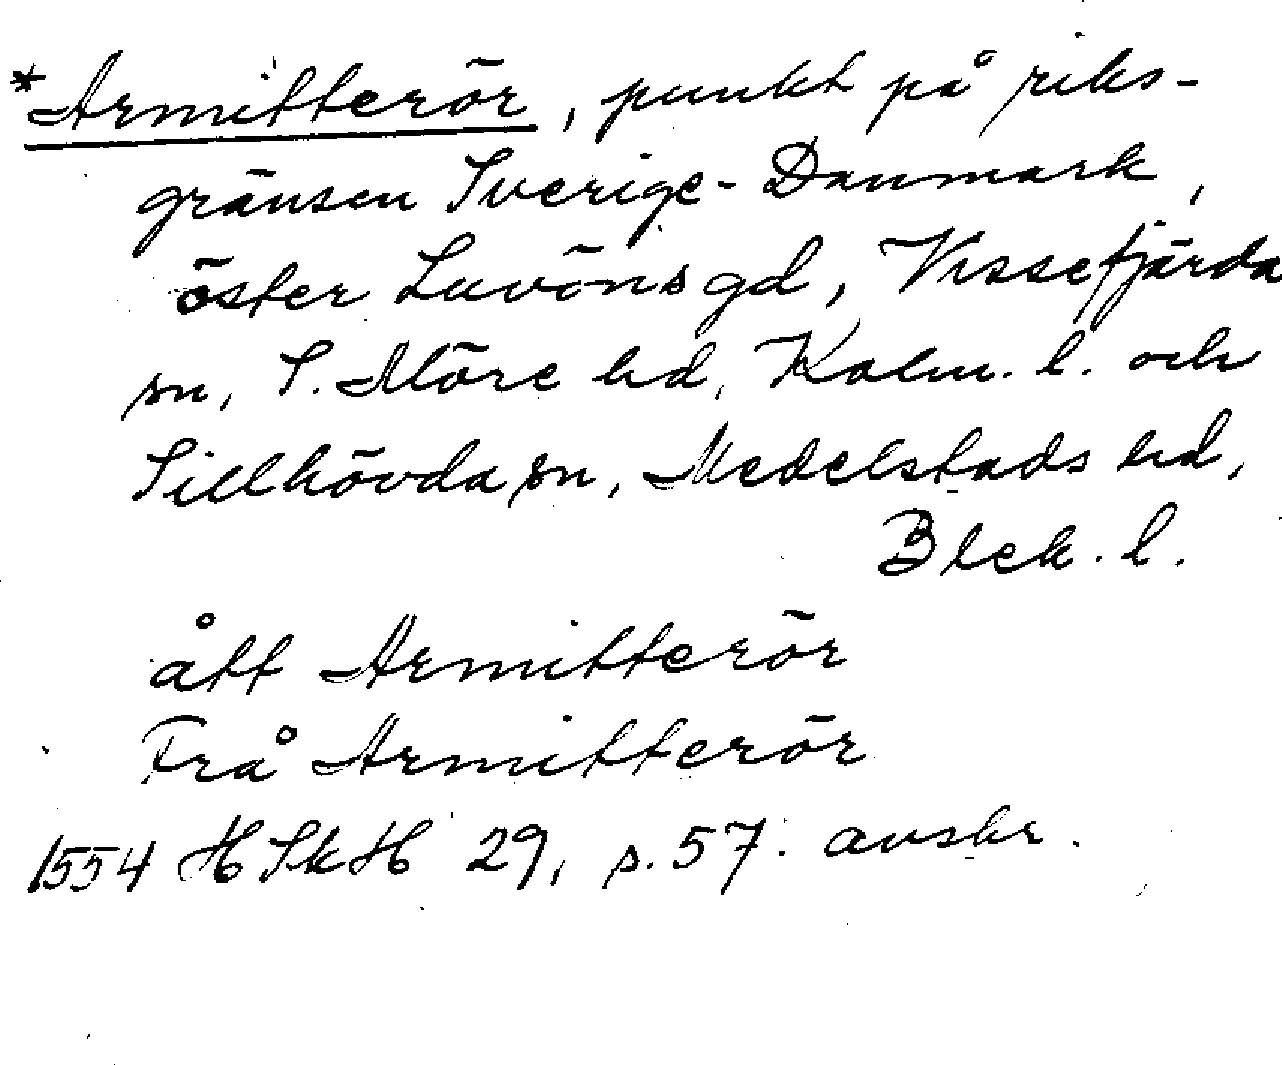 *Armitterör, punkt på riks-
gränsen Sverige-Danmark,
öster Luvöns gd, Vissefjärda
sn, S. Möre hd, Kalm. l. och
Sillhövda sn, Medelstads hd,
Blek. l.
ått Armitterör
Frå Armitterör
1554 HSkH 29, s. 57. avskr.